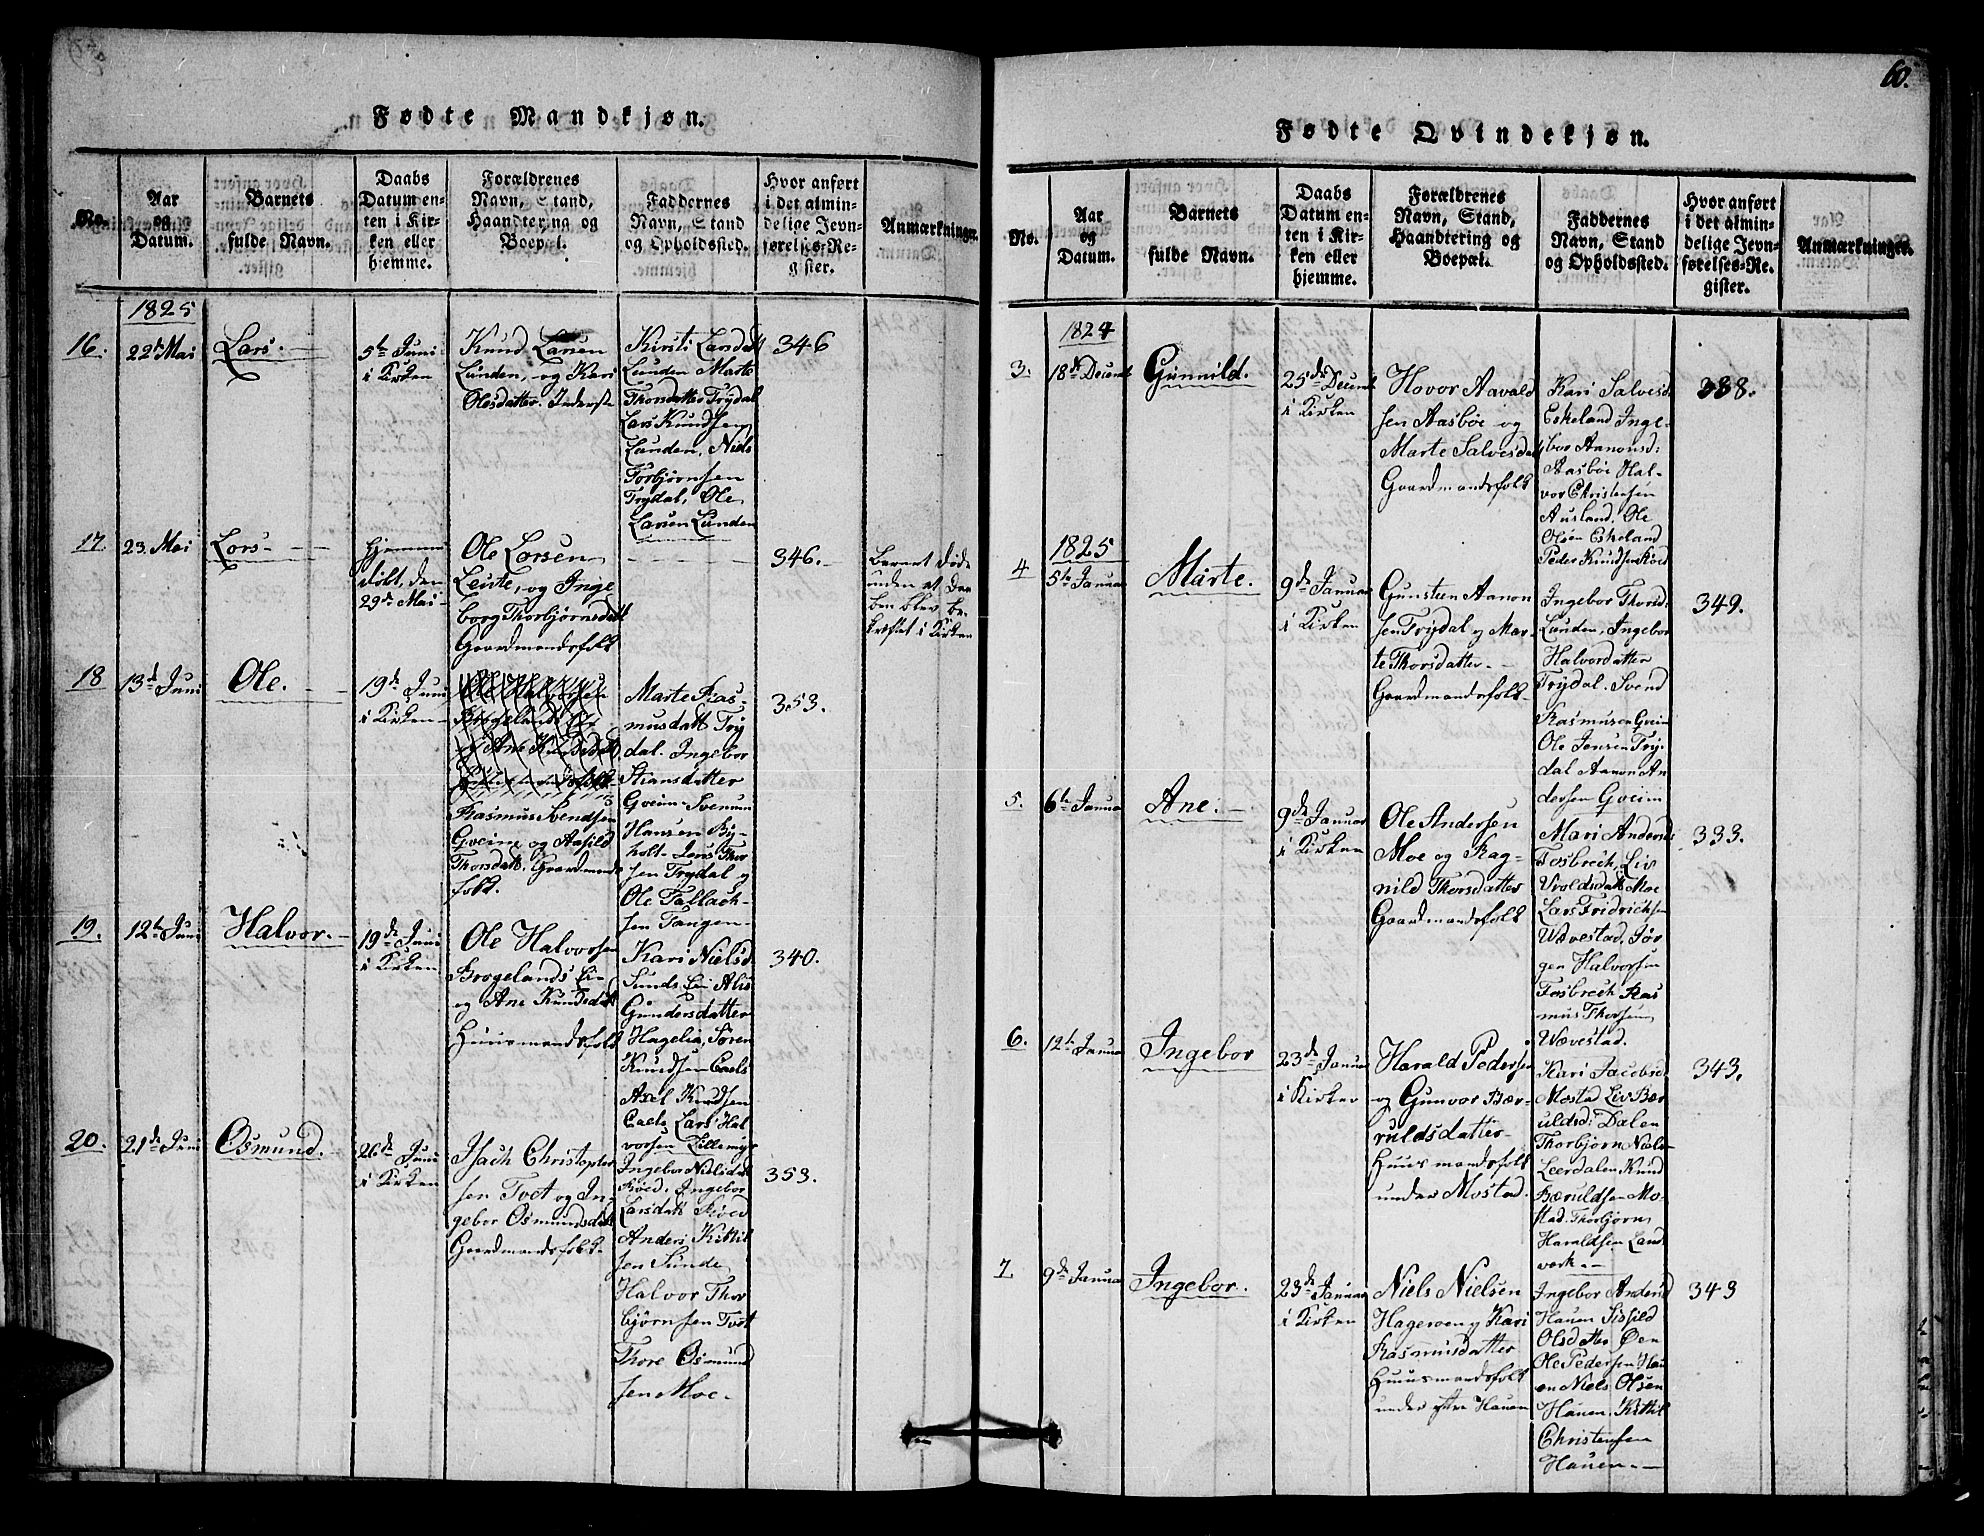 Fødte Mandkjøn.
No.
Aar
og
Datum.
Barnets
fulde Navn.
Daabs
Datum en-
ten i Kir-
ken eller
hjemme.
Forældrenes
Navn, Stand,
Haandtering og
Boepæl.
Faddernes
Navn, Stand
og Opholdssted.
Hvor anført
i det almin-
delige Jevn-
førelses-Re-
gister.
Anmærkninger.
1825
16.
22de Mai
Lars.
5te Juni
i Kirken
Knud Larsen
Lunden, og Kari
Olesdatter.
Kirsti Larsdatt
Lunden Marte
Thorsdatter Trydal
Lars Knudsen
Lunden, Niels
Torbjørnsen
Trydal, Ole
Larsen Lunden
346
17.
23. Mai
Lars
hjemme
døbt, den
29de Mai
Ole Larsen
Leiste, og Inge
borg Thorbjørnsdatt
Gaardmandsfolk
346.
Barnet døde
uden at Daa
ben blev be
kræftet i Kirken
18
13de Juni
Ole.
19de Juni
i Kirken
Ole Halvorsen
Brogelands Eie
og Ane Knudsdatt
Huusmandsfolk
Rasmus Svendsen
Gveime og Aasild
Thorsdatt. Gaardmands
folk.
Marte Ras-
musdatt Try
dal. Ingebor
Hansdatter
Gveim Svenum
Hansen By-
holt Jens Thor
sen Trydal og
Ole Tallach-
sen Tangen
353.
19.
12te Juni
Halvor.
19de Juni
i Kirken
Ole Halvorsen
Brogelands Eie
og Ane Knudsdatt
Huusmandsfolk
Kari Nielsd.
Sunds Eie Alis
Gundersdatter
Hagelia, Søren
Knudsen Caels
Axel Knudsen
Caels Lars Hal
vorsen Lillemyr
340.
20.
21de Juni
Osmund.
26de Juni
i Kirken
Isach Christopher
sen Tvet og In
gebor Osmundsdatt
Gaardmandsfolk
Ingebor Nielsdatt
Røed. Ingebor
Larsdatt Røed
Anders Kittil
sen Sunde
Halvor Thor
bjørnsen Tvet
Thore Osmund
sen Moe
353.
60.
Fødte Qvindekjøn.
No.
Aar
og
Datum.
Barnets
fulde Navn.
Daabs
Datum en-
ten i Kir-
ken eller
hjemme.
Forældrenes
Navn, Stand,
Haandtering og
Boepæl.
Faddernes
Navn, Stand
og Opholdssted.
Hvor anført
i det almin-
delige Jevn-
førelses-Re-
gister.
Anmærkninger.
1824
3.
18de Decembr
Gunnild.
25de Decembr
i Kirken
Hovor Aavald
sen Aasbøe og
Marte Salvesdatt
Gaardmandsfolk
Kari Salvesd.
Eskeland Inge-
bor Aanonsd:
Aasbøe Hal-
vor Christensen
Ausland, Ole
Olsen Eskeland
Peder Knudsen Røed
338.
1825
4
5te Januar
Marte.
9de Januar
i Kirken
Gunsteen Aanon
sen Trydal og Mar-
te Thorsdatter
Gaardmandsfolk
Ingebor Thorsd.
Lunden, Ingebor
Halvordatter
Trydal. Svend
Rasmusen Gveim
Ole Jensen Try
dal Aanon An
dersen Gveim
349.
5.
6te Januar
Ane.
9de Januar
i Kirken
Ole Andersen
Moe og Rag-
nild Thorsdatter
Gaardmandsfolk
Mari Andersd:
Fosbrech, Liv
Uroldsdatt Moe
Lars Fridrichsen
Wævestad, Jør
gen Halvorsen
Fosbrech Ras
mus Thorsen
Wævestad.
333.
6.
12te Januar
Ingebor
23de Januar
i Kirken
Harald Pedersen
og Gunvor Bær-
ruldsdatter
Huusmandsfolk
under Mostad.
Kari Jacobsd.
Mostad Liv Bær
uldsd: Dalen
Thorbjørn Niels
Leerdalen Knud
Bæruldsen Mo-
stad. Thorbjørn
Haraldsen Land
værk.
343.
7
9de Januar
Ingebor.
23de Januar
i Kirken
Niels Nielsen
Hageroen og Kari
Rasmusdatter
Huusmandsfolk
under Hauen
Ingebor Andersd
Hauen Sissild
Olsdatter Øen
Ole Pedersen Hau
en Niels Olsen
Hauen, Kittil
Christensen
Hauen.
343